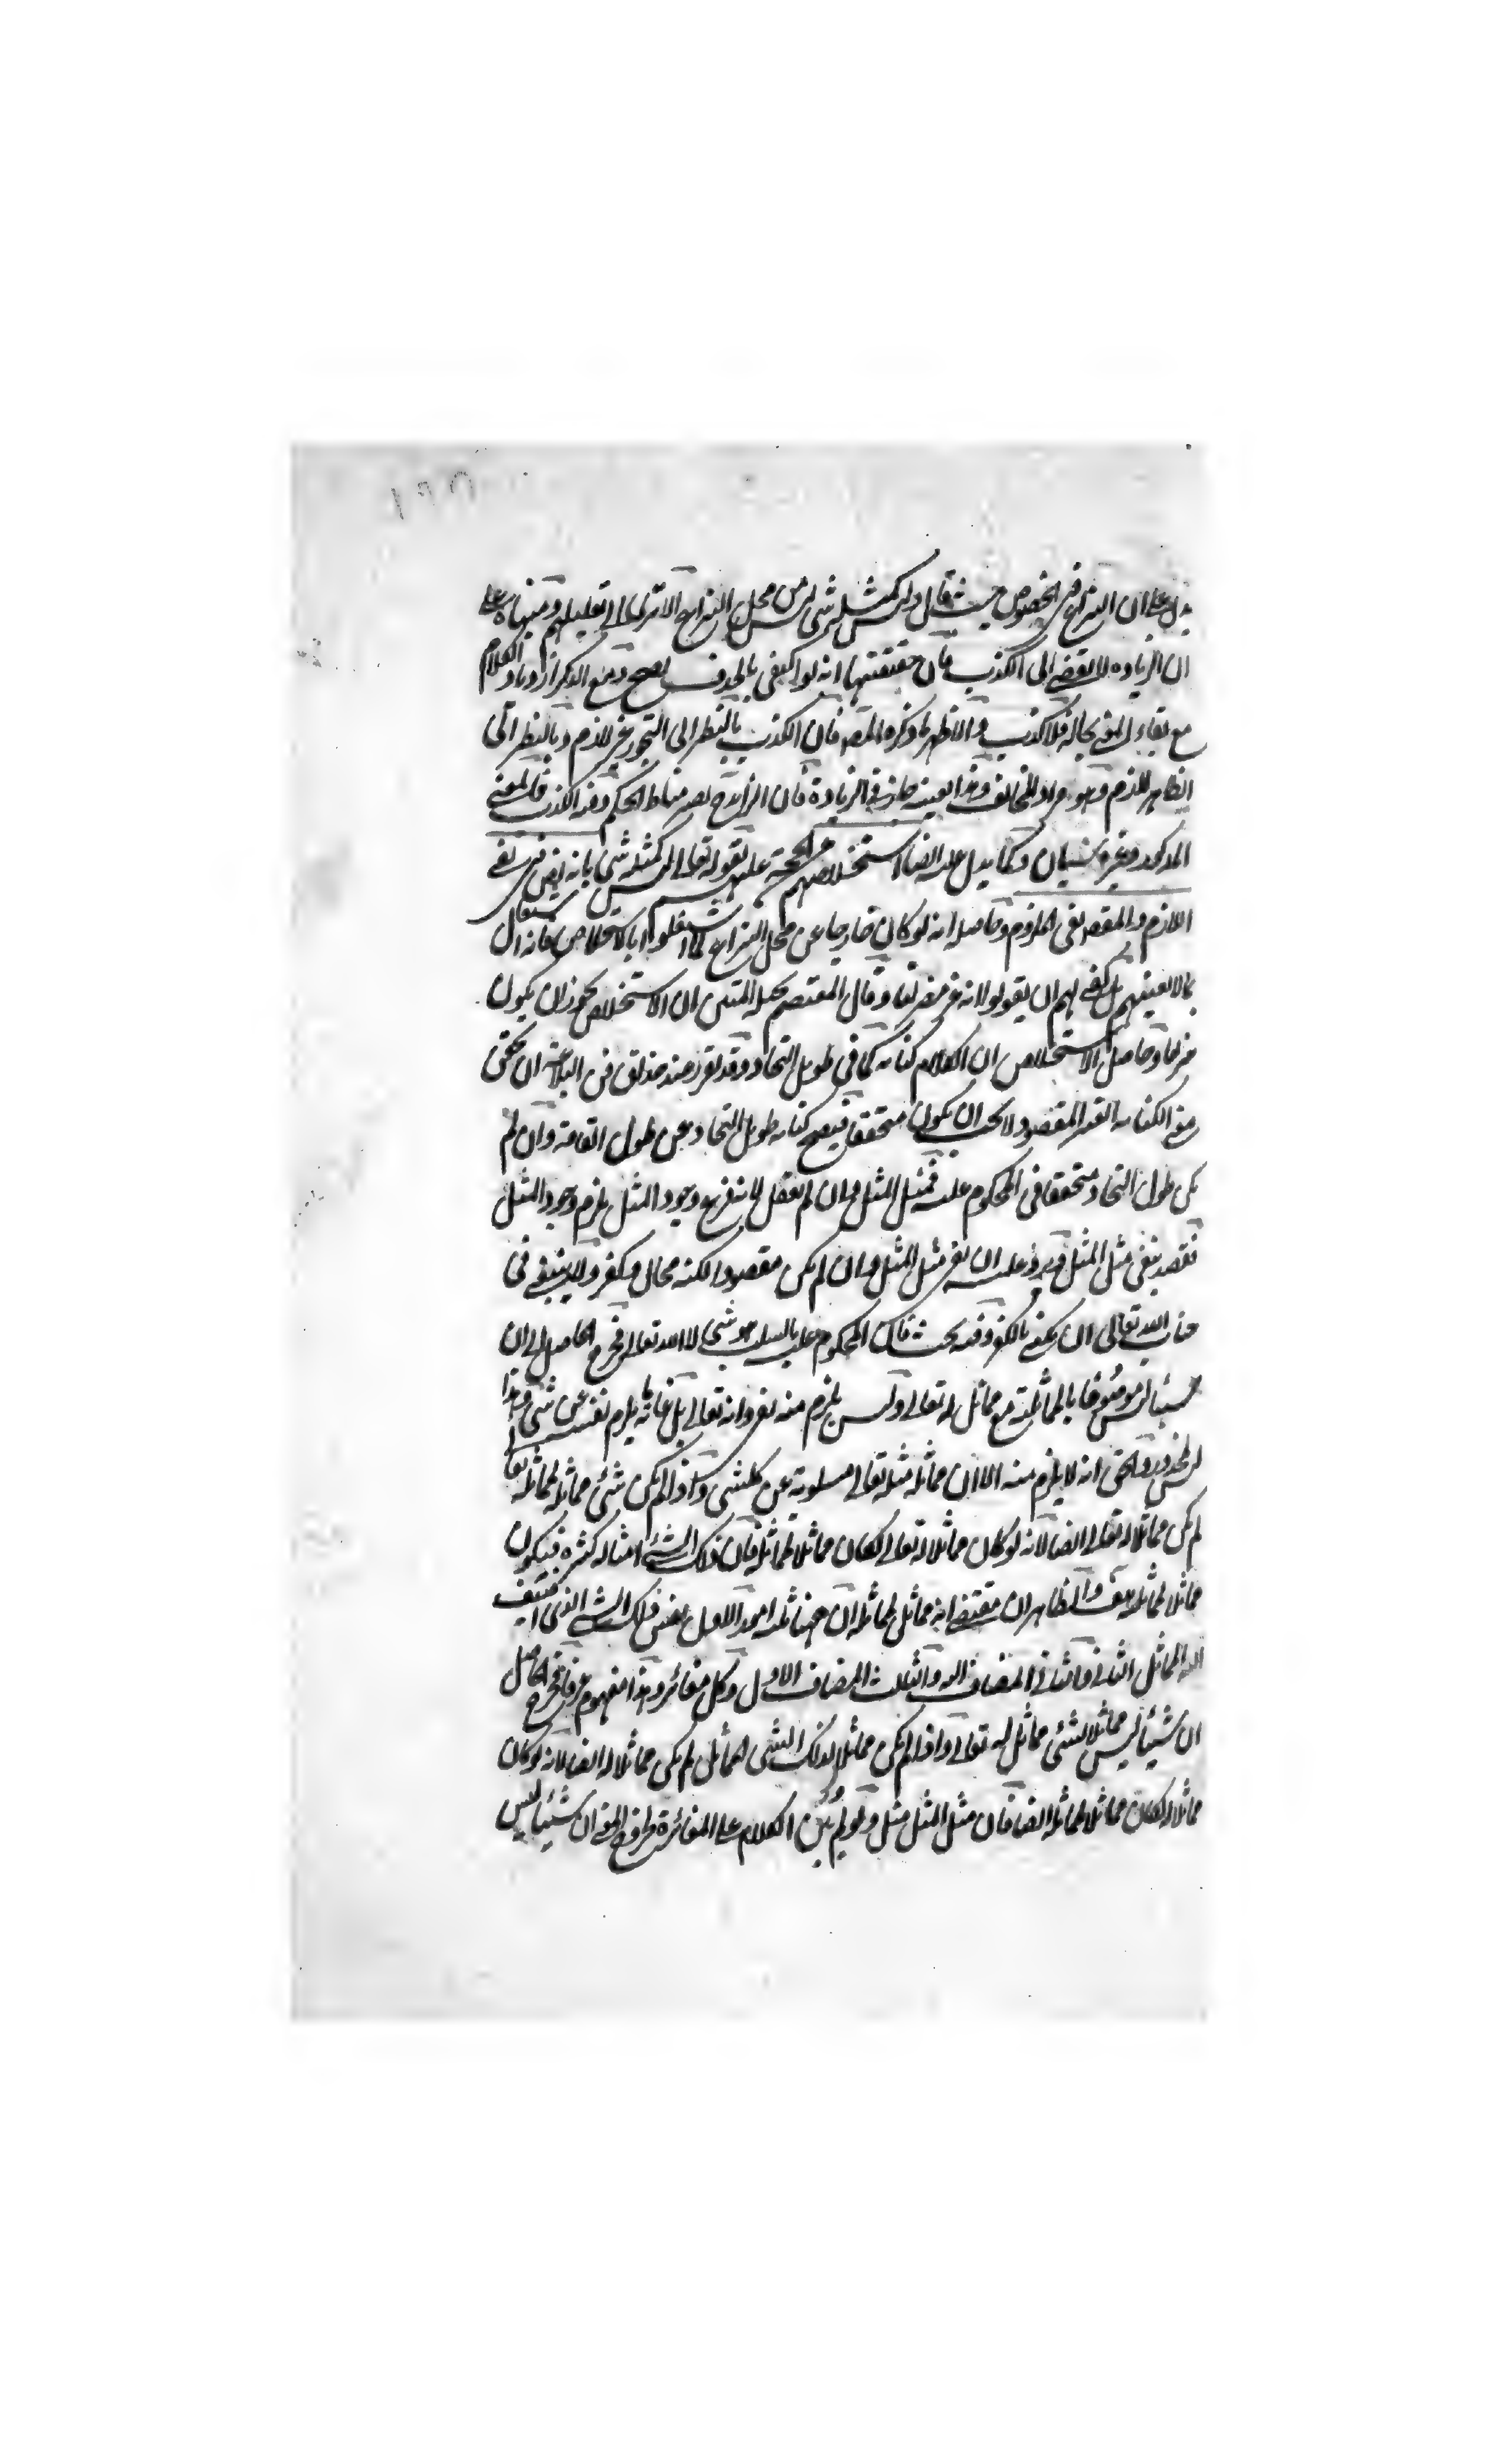 يدل على ان النزاع في الخصوص حيث قال وليس كمثله شئ ليس من محل النزاع الا ترى الى تعليلهم ومنها على
ان الزيادة لا يفضى الى الكذب فان حقيقتها انه لو اكتفى بالحذف لصح ومع الذكر ازداد الكلام
مع بقاء المعنى بحاله فلا كذب والاظهر ما ذكره المص فان الكذب بالنظر الى التجوز غير لازم وبالنظر الى
الظاهر لازم وهو مراد المخالف وهذا بعينه جار في الزيادة فان الزائد يصير مناط الحكم وفيه الكذب فالمعنى
المذكور وغيره سيان وكما يدل عليه ايضا استخلاصهم من الحجة عليهم بقوله تعالى ليس كمثله شئ بانه نفى
اللازم والمقصد نفى الملزوم وحاصله انه لو كان خارجا عن محل النزاع لما اشتغلوا بالاستخلاص فانه اشتغال
بما لا يعنيهم بل يكفى لهم ان يقولوا لانه غير مضر لنا وقال المعتصم بحبله المتين ان الاستخلاص يجوز ان يكون
وحاصل الاستخلاص ان الكلام كناية كما في طويل النجاد وقد تقرر عند حذاق فن البلاغة ان
معنى الكناية الغير المقصود لا يجب ان يكون متحققا فيصح كناية طويل النجاد عن طول القامة وان لم
يكن طول النجاد متحققا في المحكوم عليه فمثل المثل وان لم يعقل وجود المثل يلزم وجود المثل
فقصد بنفى مثل المثل ويرد عليه ان نفى مثل المثل وان لم يكن مقصودا لكنه محال وكفر ولا ينبغى في
جناب الله تعالى ان يكنى بالكفر وفيه بحث فان المحكوم عليه بالسلب هو شئ لا الله تعالى فخرج الحاصل الى ان
شيئا ليس موصوفا بالمماثلة مع مماثل له تعالى وليس يلزم منه نفى ذاته تعالى بل غايته يلزم نفيه عن شئ وهذا
ليس بمحذور والحق انه لا يلزم منه الا ان مماثلة مثله تعالى مسلوبة عن كل شئ واذا لم يكن شئ مماثلا لمماثله تعالى
لم يكن مماثلا له تعالى ايضا لانه لو كان مماثلا له تعالى لكان مماثلا لمماثله فان ذلك الشئ امثاله كثيرة فيكون
مماثلا لمماثله هف والظاهر ان مقتضى انه مماثل لمماثله ان ههنا ثلثة امور الاول نفس ذلك الشئ الذى اضيف
اليه المماثل الثانى والثانى المضاف اليه والثالث المضاف الاول وكل مغائر وهذا مفهوم عرفا فخرج الحاصل
ان شيئا ليس مماثلا لشئ مماثل له تعالى واذا لم يكن مماثلا لذلك الشئ المماثل لم يكن مماثلا له ايضا لانه لو كان
مماثلا له لكان مماثلا لمماثله ايضا فان مثل المثل مثل ولو لم يبن الكلام على المغائرة المعنى ان شيئا ليس